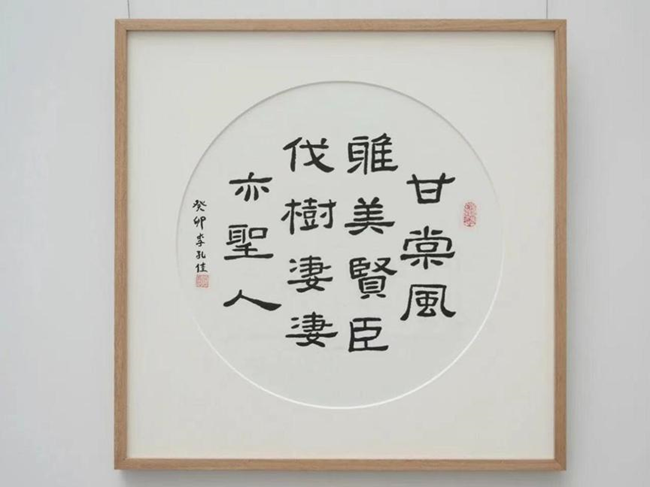 甘棠風
雅美賢臣
伐樹淒淒
亦聖人
癸卯李孔佳